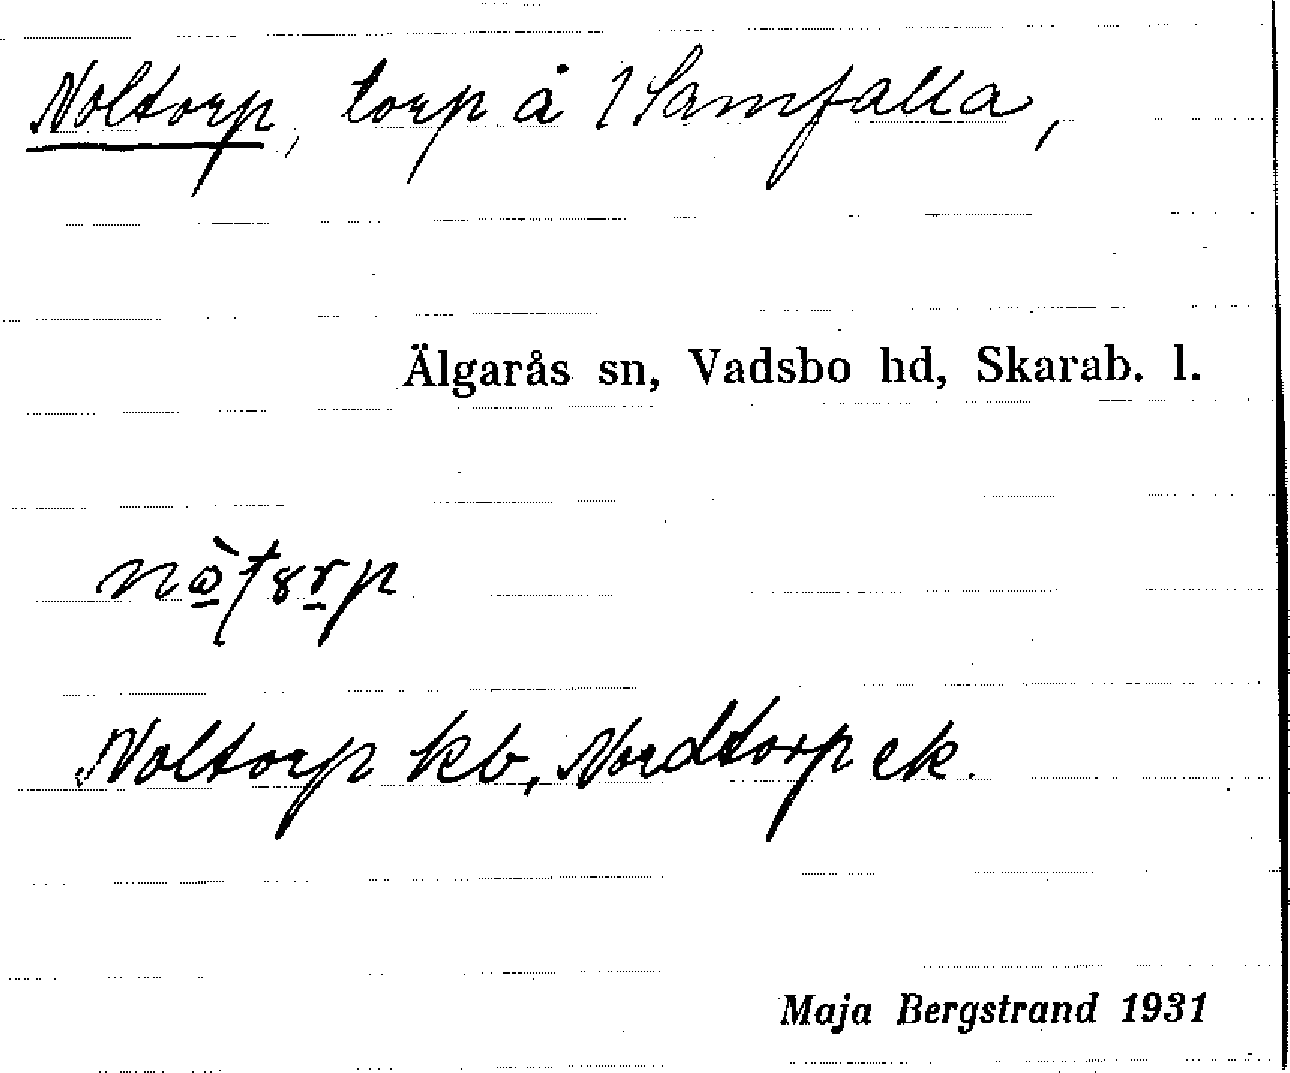 Noltorp, torp å 1 Samfälla,
Älgarås sn, Vadsbo hd, Skarab. l.
Noltorp kb, Nordtorp ek.
Maja Bergstrand 1931